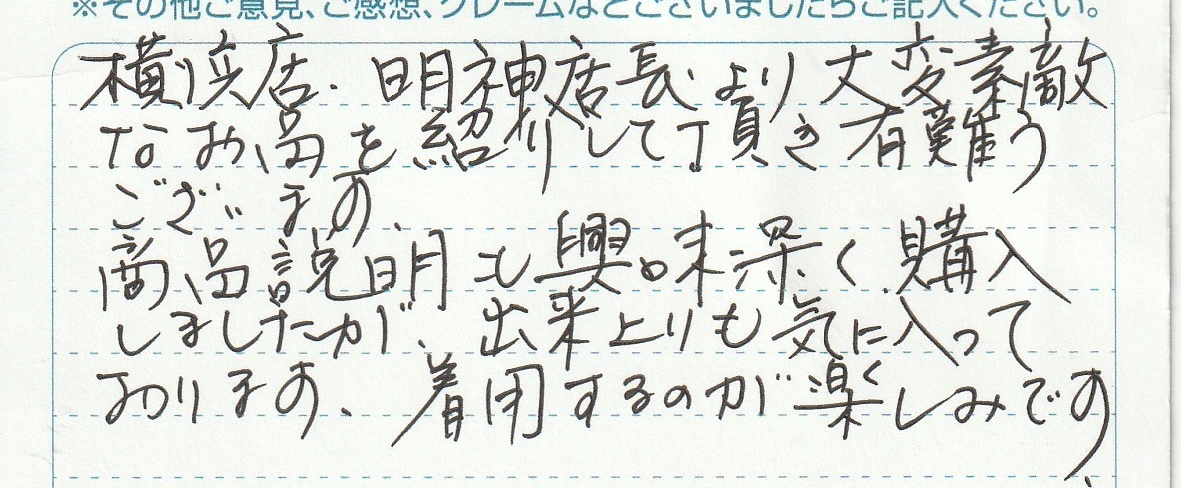 ※その他ご意見、ご感想、クレームなどございましたらご記入ください。
横浜店、明神店長より大変素敵
なお品を紹介して頂き有難う
ございます。
商品説明も興味深く購入
しましたが、出来上りも気に入って
おります、着用するのが楽しみです